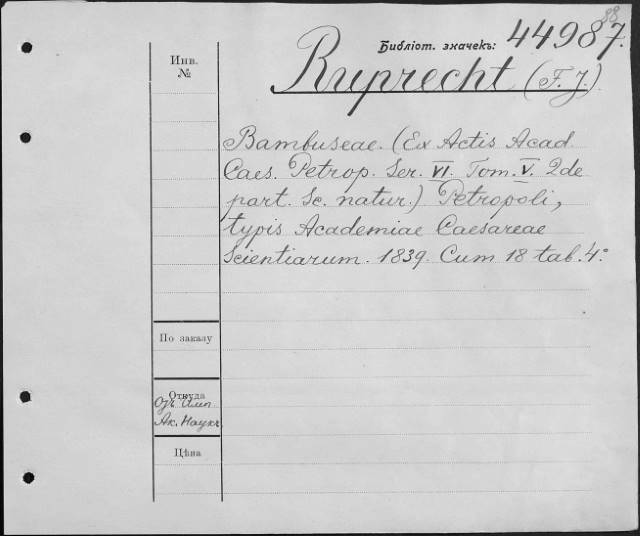 88
Библіот. значекъ: 44987.
Инв.
№
Ruprecht (F. J.)
Bambuseae. (Ex Actis Acad.
Caes. Petrop. Ser. VI. Tom. V. 2de
part. Sc. natur.) Petropoli,
typis Academiae Caesareae
Scientiarum. 1839. Cum 18 tab. 4°
По заказу
Откуда
Ак. Наукъ
Цѣна